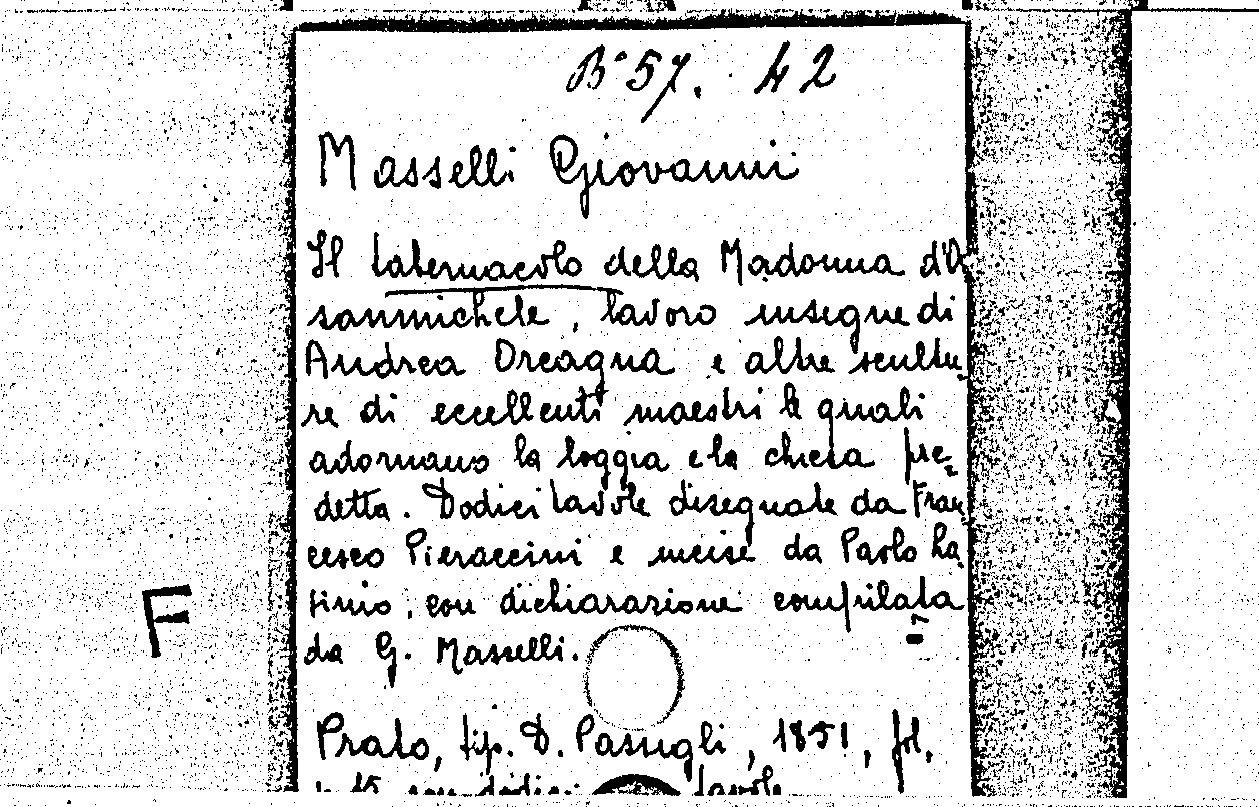 B° 57. 42
Masselli Giovanni
Il tabernacolo della Madonna d'Or
sanmichele, lavoro insegne di
Andrea Orcagna e altre scultu-
re di eccellenti maestri le quali
adornano la loggia e la chiesa pre-
detta. Dodici tavole disegnate da Fran-
cesco Pieraccini e incise da Paolo La-
sinio, con dichiarazione compilata
da G. Masselli.
F
Prato, tip. D. Passigli, 1851, fol.
p. 15 con dodici tavole